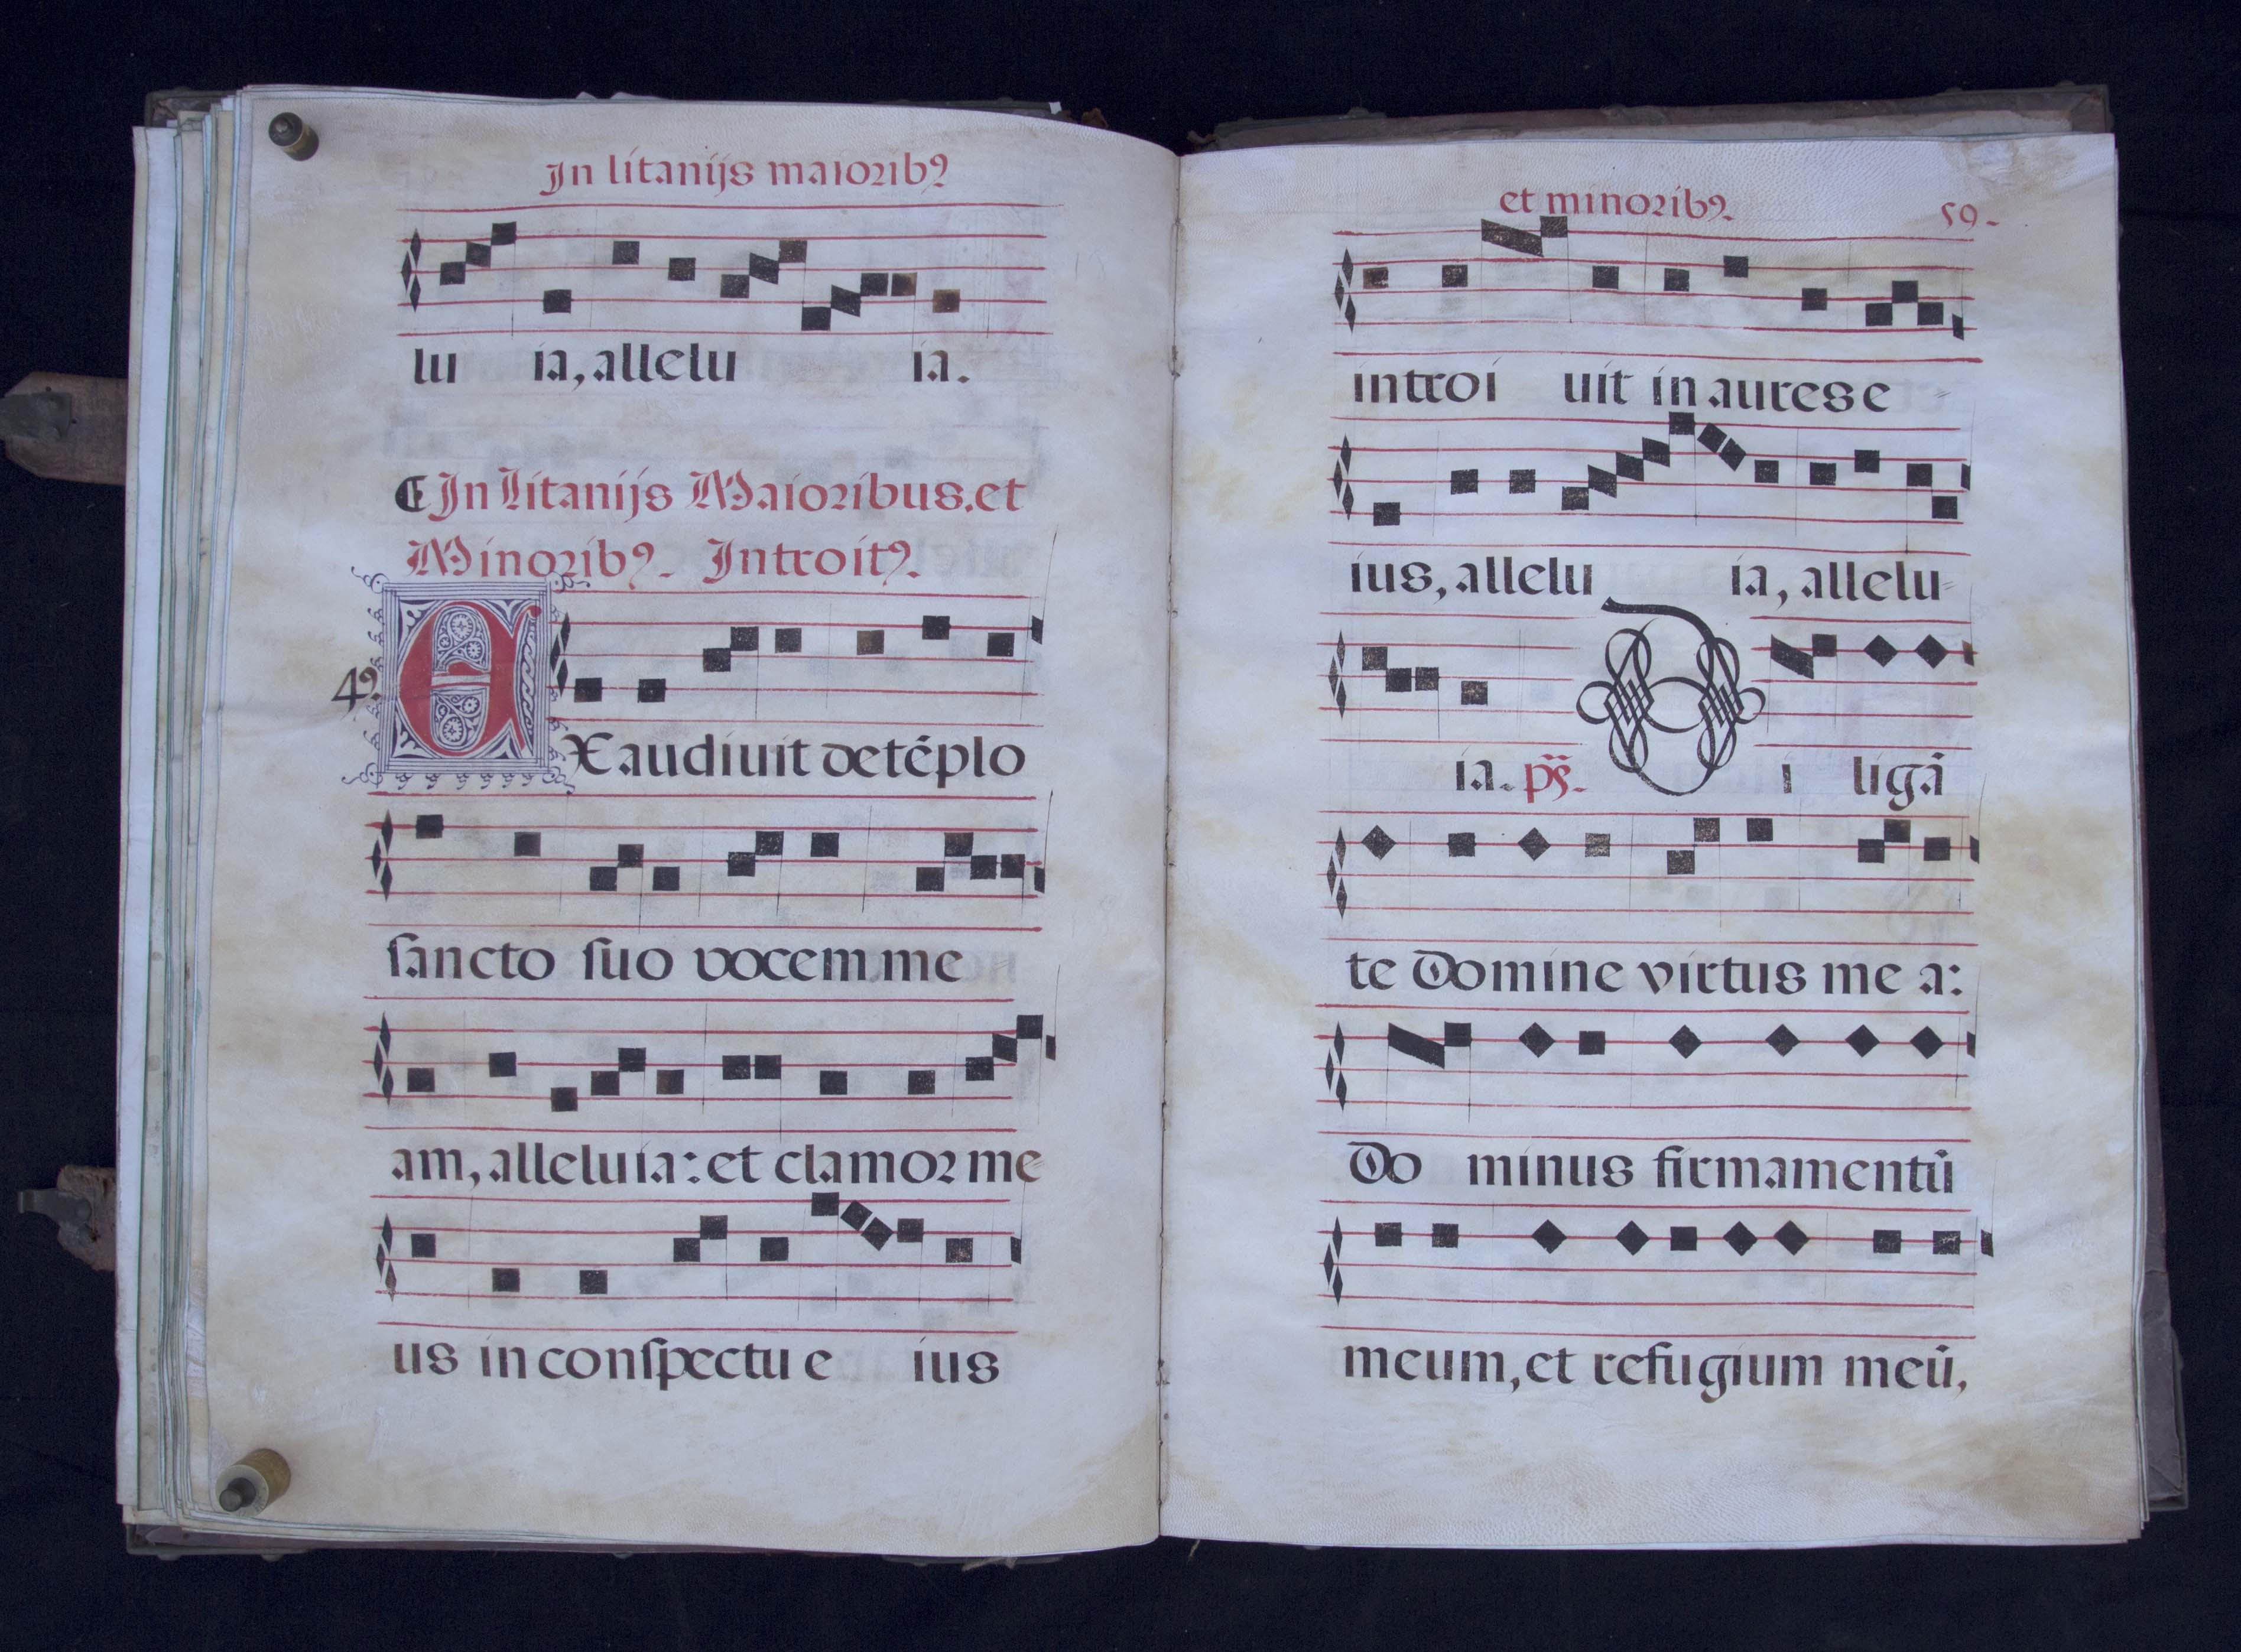 In litanijs maiorib9
lu ia, allelu ia.
¶ In Litanijs Maioribus. et
Minorib9. Introit9.
49.
EXaudiuit de tẽplo
ſancto ſuo vocem me
am, alleluia: et clamor me
us in conſpectu e ius
et minorib9. 59.
introi uit in aures e
ius, allelu ia, allelu
ia. ps. Di ligã
te Domine virtus me a:
Do minus firmamentũ
meum, et refugium meũ,